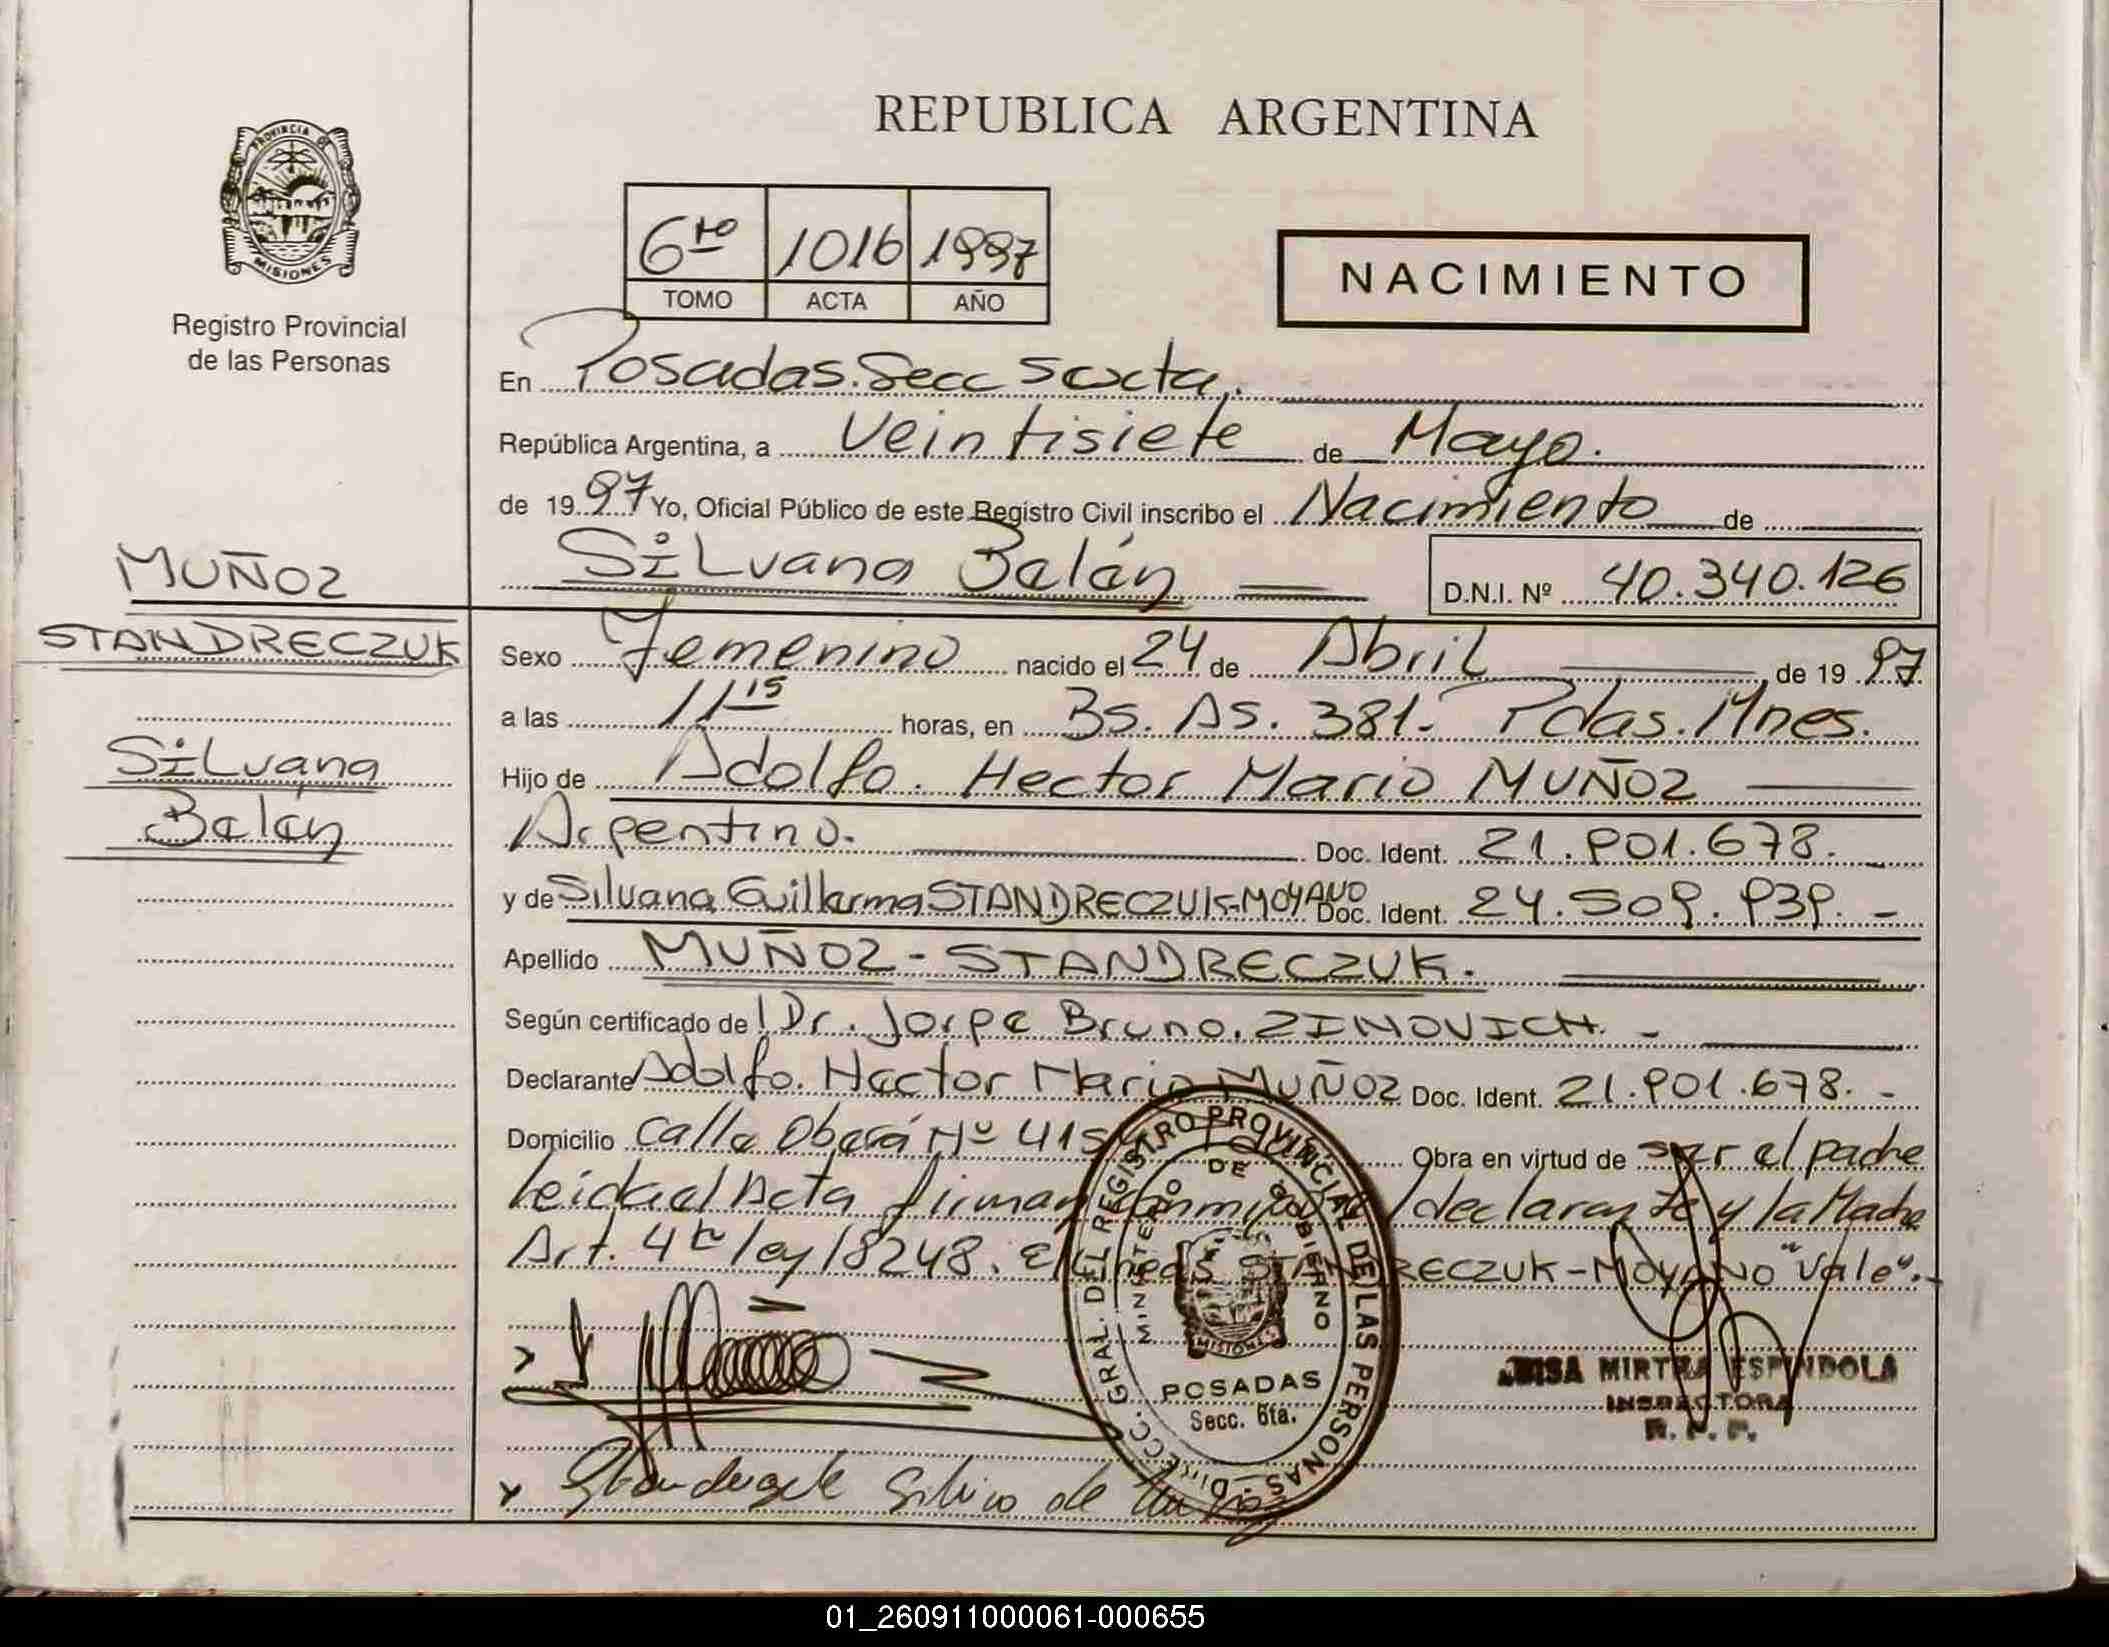 REPUBLICA ARGENTINA
PROVINCIA DE
MISIONES
Registro Provincial
de las Personas
6to 1016 1997
TOMO ACTA AÑO
NACIMIENTO
En Posadas. Secc Sexta.
República Argentina, a Veintisiete de Mayo.
de 1997 Yo, Oficial Público de este Registro Civil inscribo el Nacimiento de
Silvana Belén D.N.I. Nº 40.340.126
MUÑOZ
STANDRECZUK
Silvana
Belén
Sexo Femenino nacido el 24 de Abril de 1997
a las 11 15 horas, en Bs. As. 381- Pdas. Mnes.
Hijo de Adolfo. Hector Mario MUÑOZ
Argentino. Doc. Ident. 21.901.678.
y de Silvana Guillerma STANDRECZUK-MOYANO Doc. Ident. 24.509.939. -
Apellido MUÑOZ - STANDRECZUK.
Según certificado del Dr. Jorge Bruno. ZINOVICH. -
Declarante Adolfo. Hector Mario MUÑOZ Doc. Ident. 21.901.678. -
Domicilio Calle Oberá Nº 415 Obra en virtud de ser el padre
Leida el Acta firman conmigo el declarante y la Madre
Art. 4to ley 18248. STANDRECZUK-MOYANO "Vale".-
DIRECC. GRAL. DEL REGISTRO PROVINCIAL DE LAS PERSONAS
MINISTERIO DE GOBIERNO
MISIONES
POSADAS
Secc. 6ta.
LUISA MIRTHA ESPINDOLA
INSPECTORA
R. P. P.
01_260911000061-000655